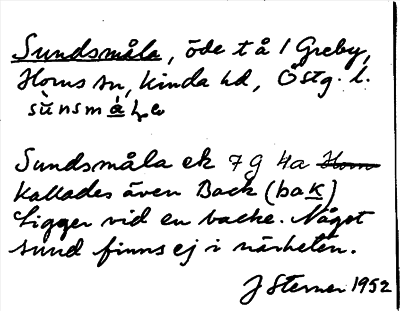 Sundsmåla, öde t å 1 Greby,
Horns sn, Kinda hd, Östg. l.
Sundsmåla ek 7 g 4a Horn
Kallades även Back (bak)
Ligger vid en backe. Något
sund finns ej i närheten.
J Sterner 1952